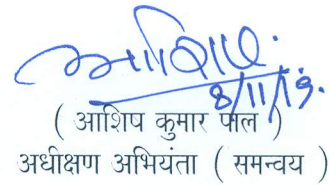 आशिष
8/11/19.
( आशिप कुमार पाल )
अधीक्षण अभियंता ( समन्वय )